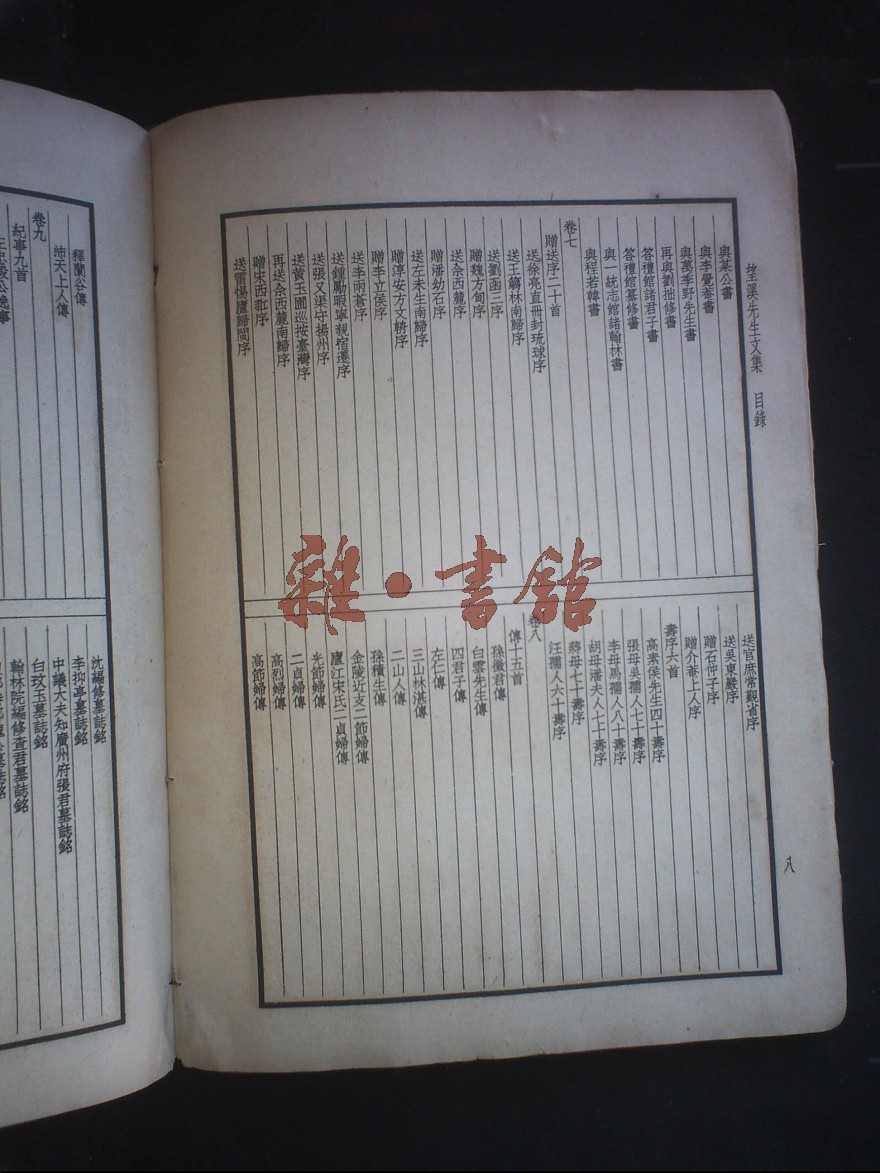 望溪先生文集 目錄
與某公書
與李覺菴書
與萬季野先生書
再與劉拙修書
答禮館諸君子書
答禮館纂修書
與一統志館諸翰林書
與程若韓書
卷七
贈送序二十首
送徐亮直冊封琉球序
送王篛林南歸序
送劉函三序
贈魏方甸序
送佘西麓序
贈潘幼石序
送左未生南歸序
贈淳安方文輈序
贈李立侯序
送李雨蒼序
送鍾勵暇寧親宿遷序
送張又渠守揚州序
送黃玉圃巡按臺灣序
再送佘西麓南歸序
贈宋西𤥨序
送雷惕廬歸閩序
送官庶常覲省序
送吳東巖序
贈石仲子序
贈介菴上人序
壽序六首
高素侯先生四十壽序
張母吳孺人七十壽序
李母馬孺人八十壽序
胡母潘夫人七十壽序
蔣母七十壽序
汪孺人六十壽序
卷八
傳十五首
孫徵君傳
白雲先生傳
四君子傳
左仁傳
三山林湛傳
二山人傳
孫積生傳
金陵近支二節婦傳
廬江宋氏二貞婦傳
光節婦傳
二貞婦傳
高烈婦傳
高節婦傳
八
釋蘭谷傳
沛天上人傳
卷九
紀事九首
沈編修墓誌銘
李抑亭墓誌銘
中議大夫知廣州府張君墓誌銘
白玟玉墓誌銘
翰林院編修查君墓誌銘
雜·書館